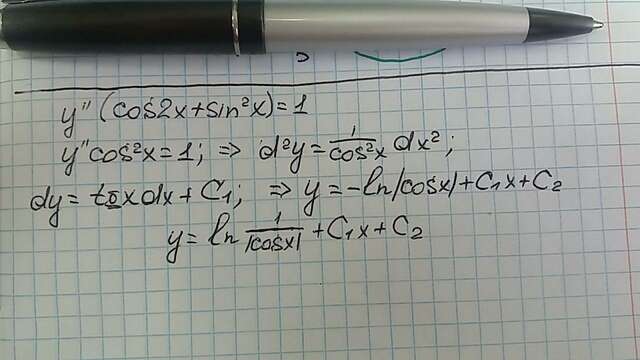 y'' (cos2x+sin²x)=1
y''cos²x=1; => d²y=1/cos²x dx²;
dy=tgxdx+C₁; => y=-ln|cosx|+C₁x+C₂
y=ln 1/|cosx| +C₁x+C₂